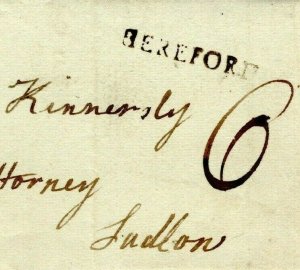 HEREFORD
Kinnersly
6
ttorney
Ludlow